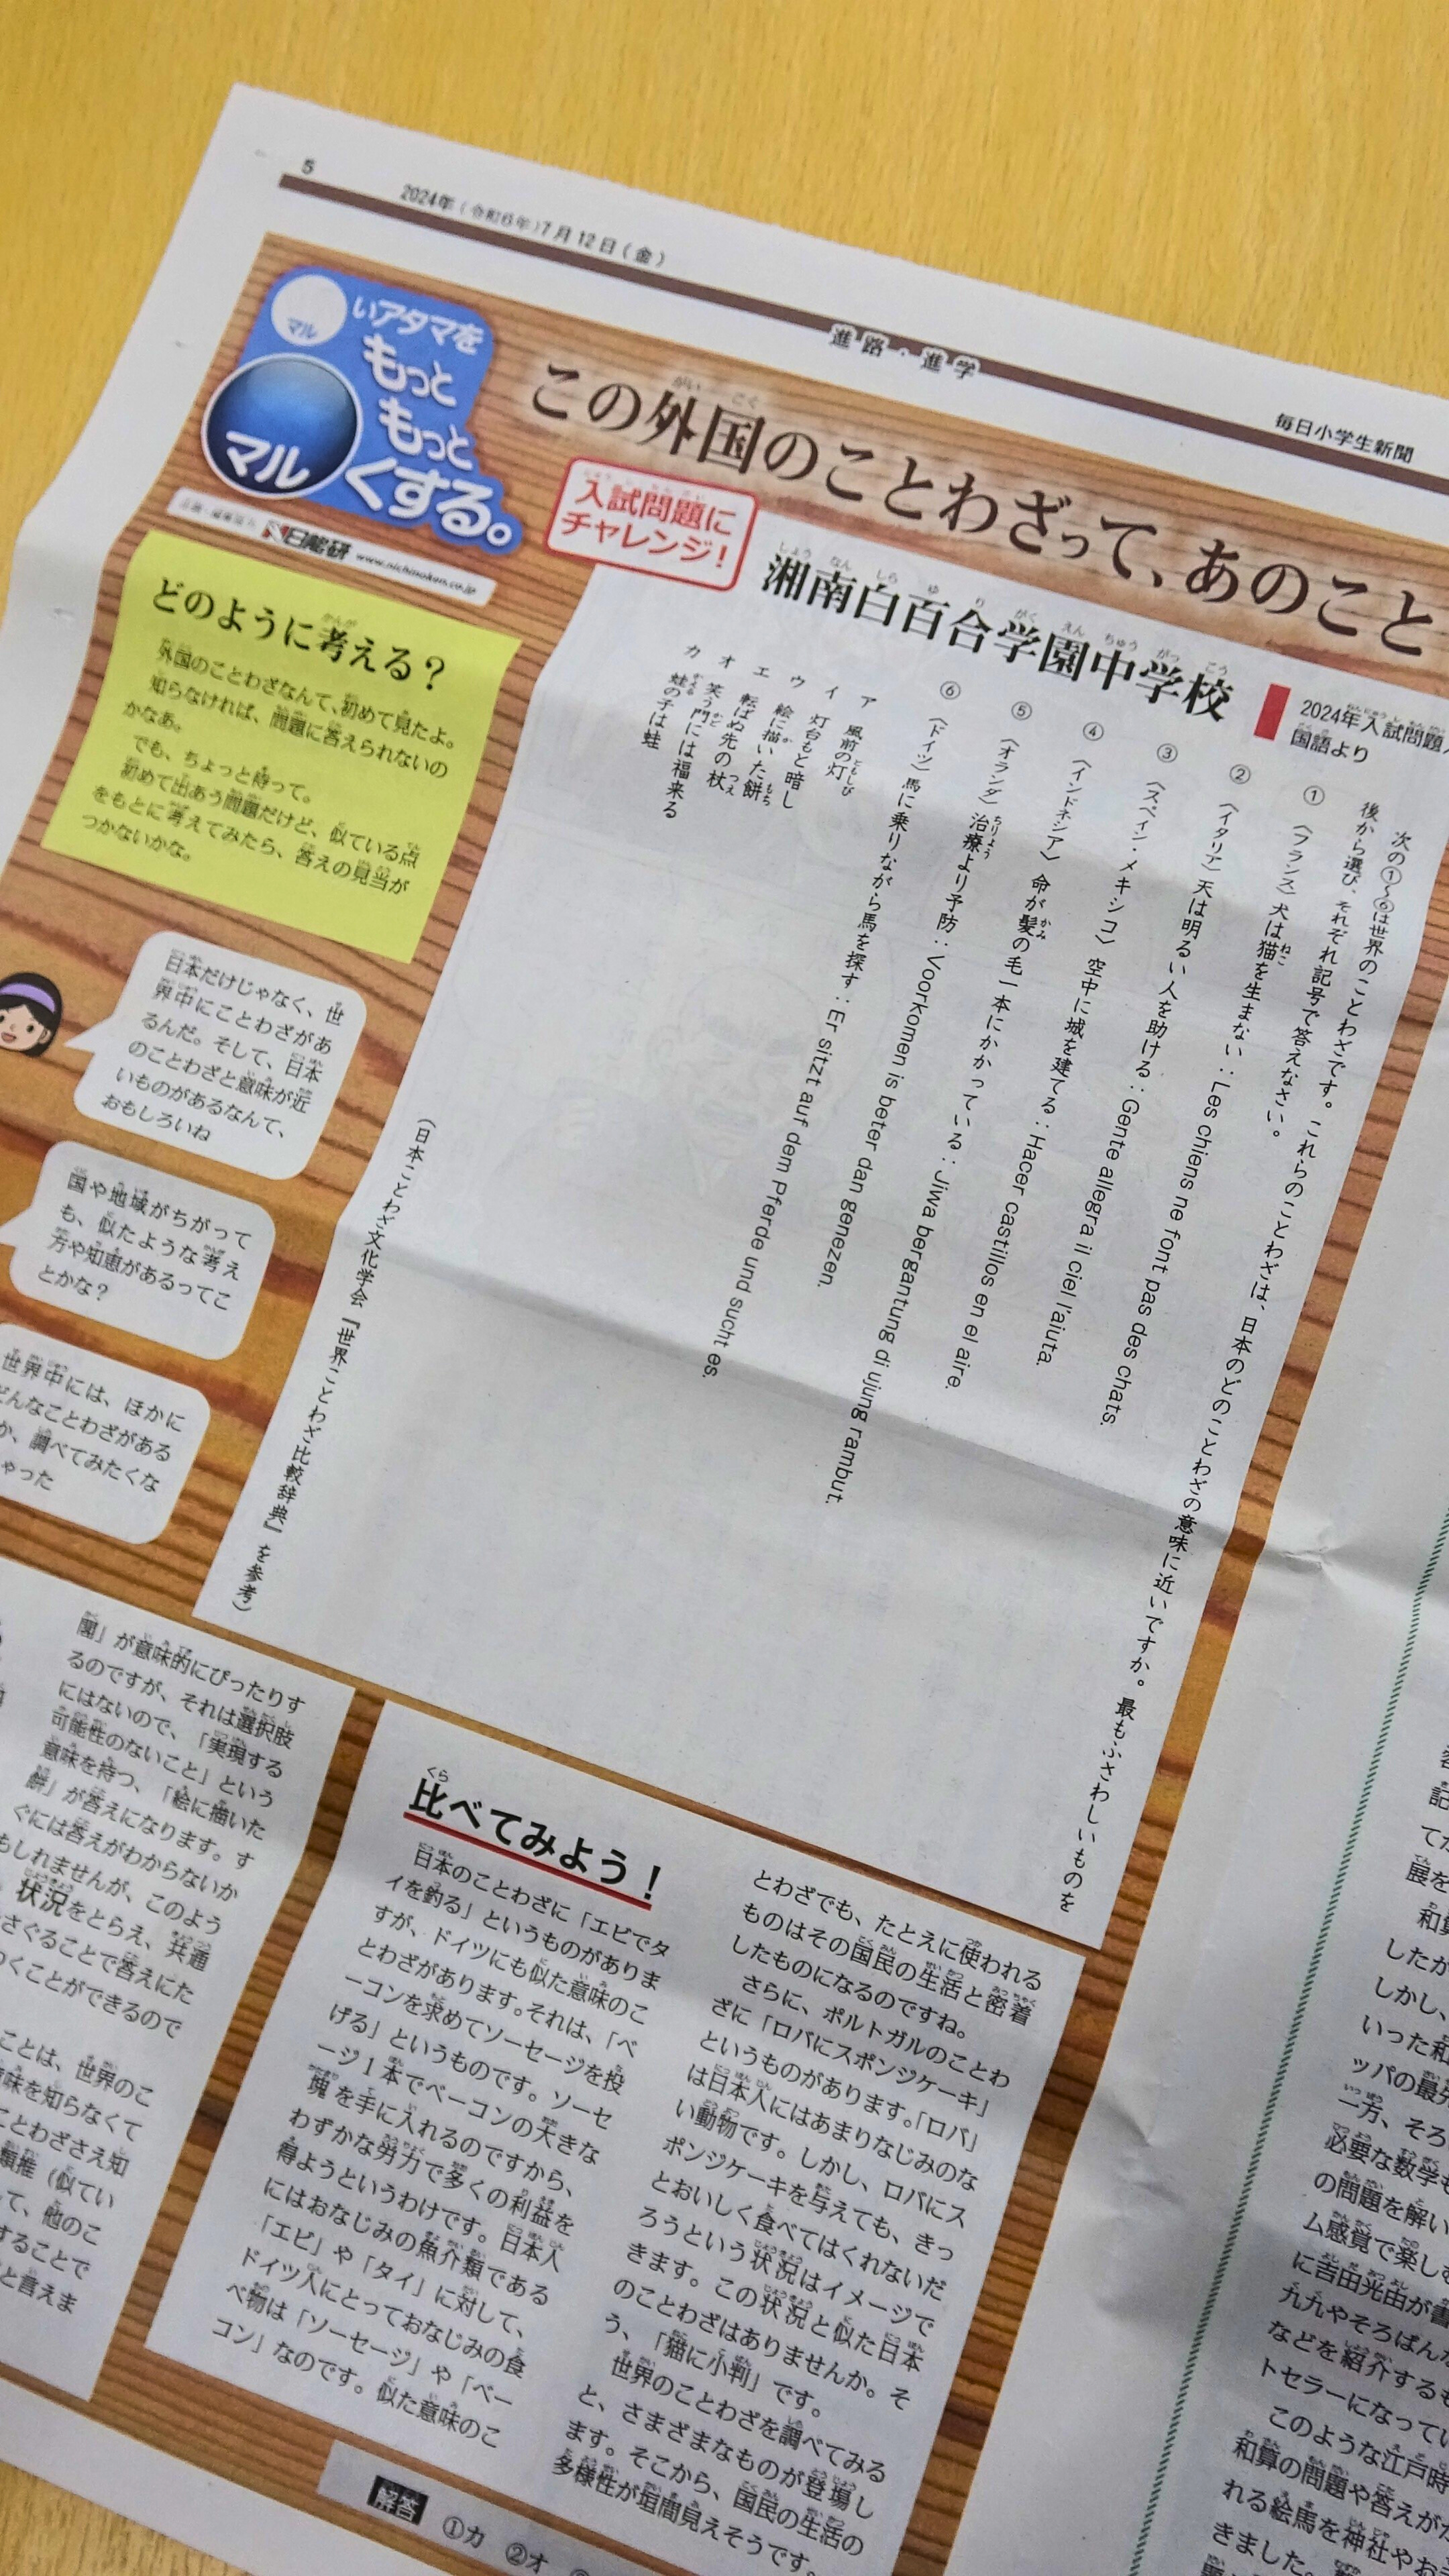 5
2024年(令和6年)7月12日(金)
進路・進学
毎日小学生新聞
マルいアタマを
もっと
もっと
マルくする。
日能研 www.nichinoken.co.jp
この外国のことわざって、あのこと
入試問題に
チャレンジ!
湘南白百合学園中学校
2024年入試問題
国語より
次の①~⑥は世界のことわざです。これらのことわざは、日本のどのことわざの意味に近いですか。最もふさわしいものを
後から選び、それぞれ記号で答えなさい。
① 〈フランス〉犬は猫を生まない:Les chiens ne font pas des chats.
② 〈イタリア〉天は明るい人を助ける:Gente allegra il ciel l'aiuta.
③ 〈スペイン・メキシコ〉空中に城を建てる:Hacer castillos en el aire.
④ 〈インドネシア〉命が髪の毛一本にかかっている:Jiwa bergantung di ujung rambut.
⑤ 〈オランダ〉治療より予防:Voorkomen is beter dan genezen.
⑥ 〈ドイツ〉馬に乗りながら馬を探す:Er sitzt auf dem Pferde und sucht es.
ア 風前の灯
イ 灯台もと暗し
ウ 絵に描いた餅
エ 転ばぬ先の杖
オ 笑う門には福来る
カ 蛙の子は蛙
(日本ことわざ文化学会『世界ことわざ比較辞典』を参考)
どのように考える?
外国のことわざなんて、初めて見たよ。
知らなければ、問題に答えられないの
かなあ。
でも、ちょっと待って。
初めて出あう問題だけど、似ている点
をもとに考えてみたら、答えの見当が
つかないかな。
日本だけじゃなく、世
界中にことわざがあ
るんだ。そして、日本
のことわざと意味が近
いものがあるなんて、
おもしろいね
国や地域がちがって
も、似たような考え
方や知恵があるってこ
とかな?
世界中には、ほかに
どんなことわざがある
か、調べてみたくな
ゃった
閣」が意味的にぴったりす
るのですが、それは選択肢
にはないので、「実現する
可能性のないこと」という
意味を持つ、「絵に描いた
餅」が答えになります。す
ぐには答えがわからないか
もしれませんが、このよう
状況をとらえ、共通
さぐることで答えにた
つくことができるので
ことは、世界のこ
意味を知らなくて
ことわざさえ知
類推(似てい
て、他のこ
することで
と言えま
比べてみよう!
日本のことわざに「エビでタ
イを釣る」というものがありま
すが、ドイツにも似た意味のこ
とわざがあります。それは、「ベ
ーコンを求めてソーセージを投
げる」というものです。ソーセ
ージ1本でベーコンの大きな
塊を手に入れるのですから、
わずかな労力で多くの利益を
得ようというわけです。日本人
にはおなじみの魚介類である
「エビ」や「タイ」に対して、
ドイツ人にとっておなじみの食
べ物は「ソーセージ」や「ベー
コン」なのです。似た意味のこ
とわざでも、たとえに使われる
ものはその国民の生活と密着
したものになるのですね。
さらに、ポルトガルのことわ
ざに「ロバにスポンジケーキ」
というものがあります。「ロバ」
は日本人にはあまりなじみのな
い動物です。しかし、ロバにス
ポンジケーキを与えても、きっ
とおいしく食べてはくれないだ
ろうという状況はイメージで
きます。この状況と似た日本
のことわざはありませんか。そ
う、「猫に小判」です。
世界のことわざを調べてみる
と、さまざまなものが登場し
ます。そこから、国民の生活の
多様性が垣間見えそうです。
解答 ①カ ②オ
展を
和算
したが
しかし、
いった和
ッパの最
一方、そろ
必要な数学も
の問題を解い
ム感覚で楽し
に吉田光由が書
九九やそろばん
などを紹介するも
トセラーになってい
このような江戸時
和算の問題や答えが
れる絵馬を神社やお
きました。